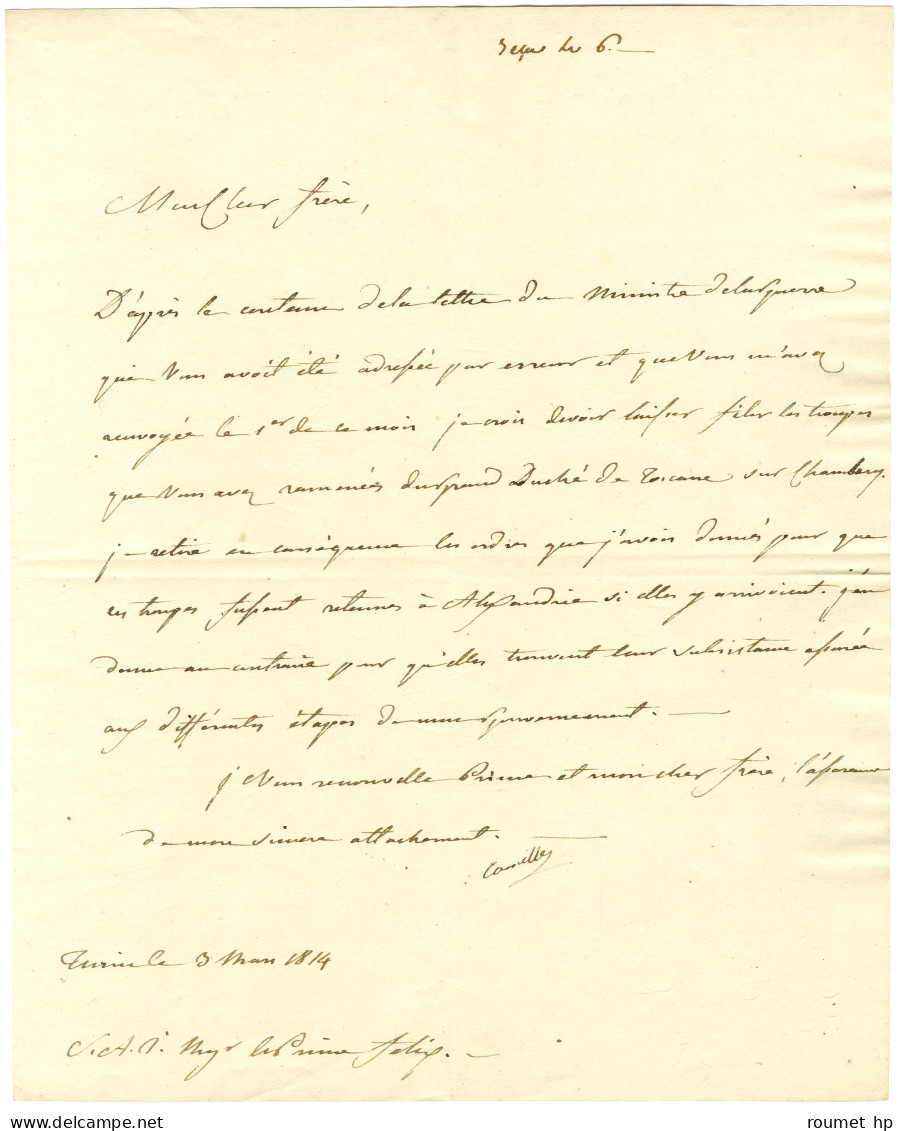 reçue le 6. —
Mon Cher frère,
D'après le contenu de la lettre du Ministre de la guerre
qui Vous avoit été adressée par erreur et que Vous m'avez
renvoyée le 1er de ce mois je crois devoir laisser filer les troupes
que Vous avez ramenées du Grand Duché de Toscane sur Chambery.
je retire en conséquence les ordres que j'avois donnés pour que
ces troupes fussent retenues à Alexandrie si elles y arrivoient. j'en
donne au contraire pour qu'elles trouvent leur subsistance assurée
aux différentes étapes de mon gouvernement. —
je Vous renouvelle Prince et mon cher frère, l'assurance
de mon sincère attachement. —
Camille
Turin le 3 Mars 1814
S. A. I. Mgr le Prince felix. —
roumet hp